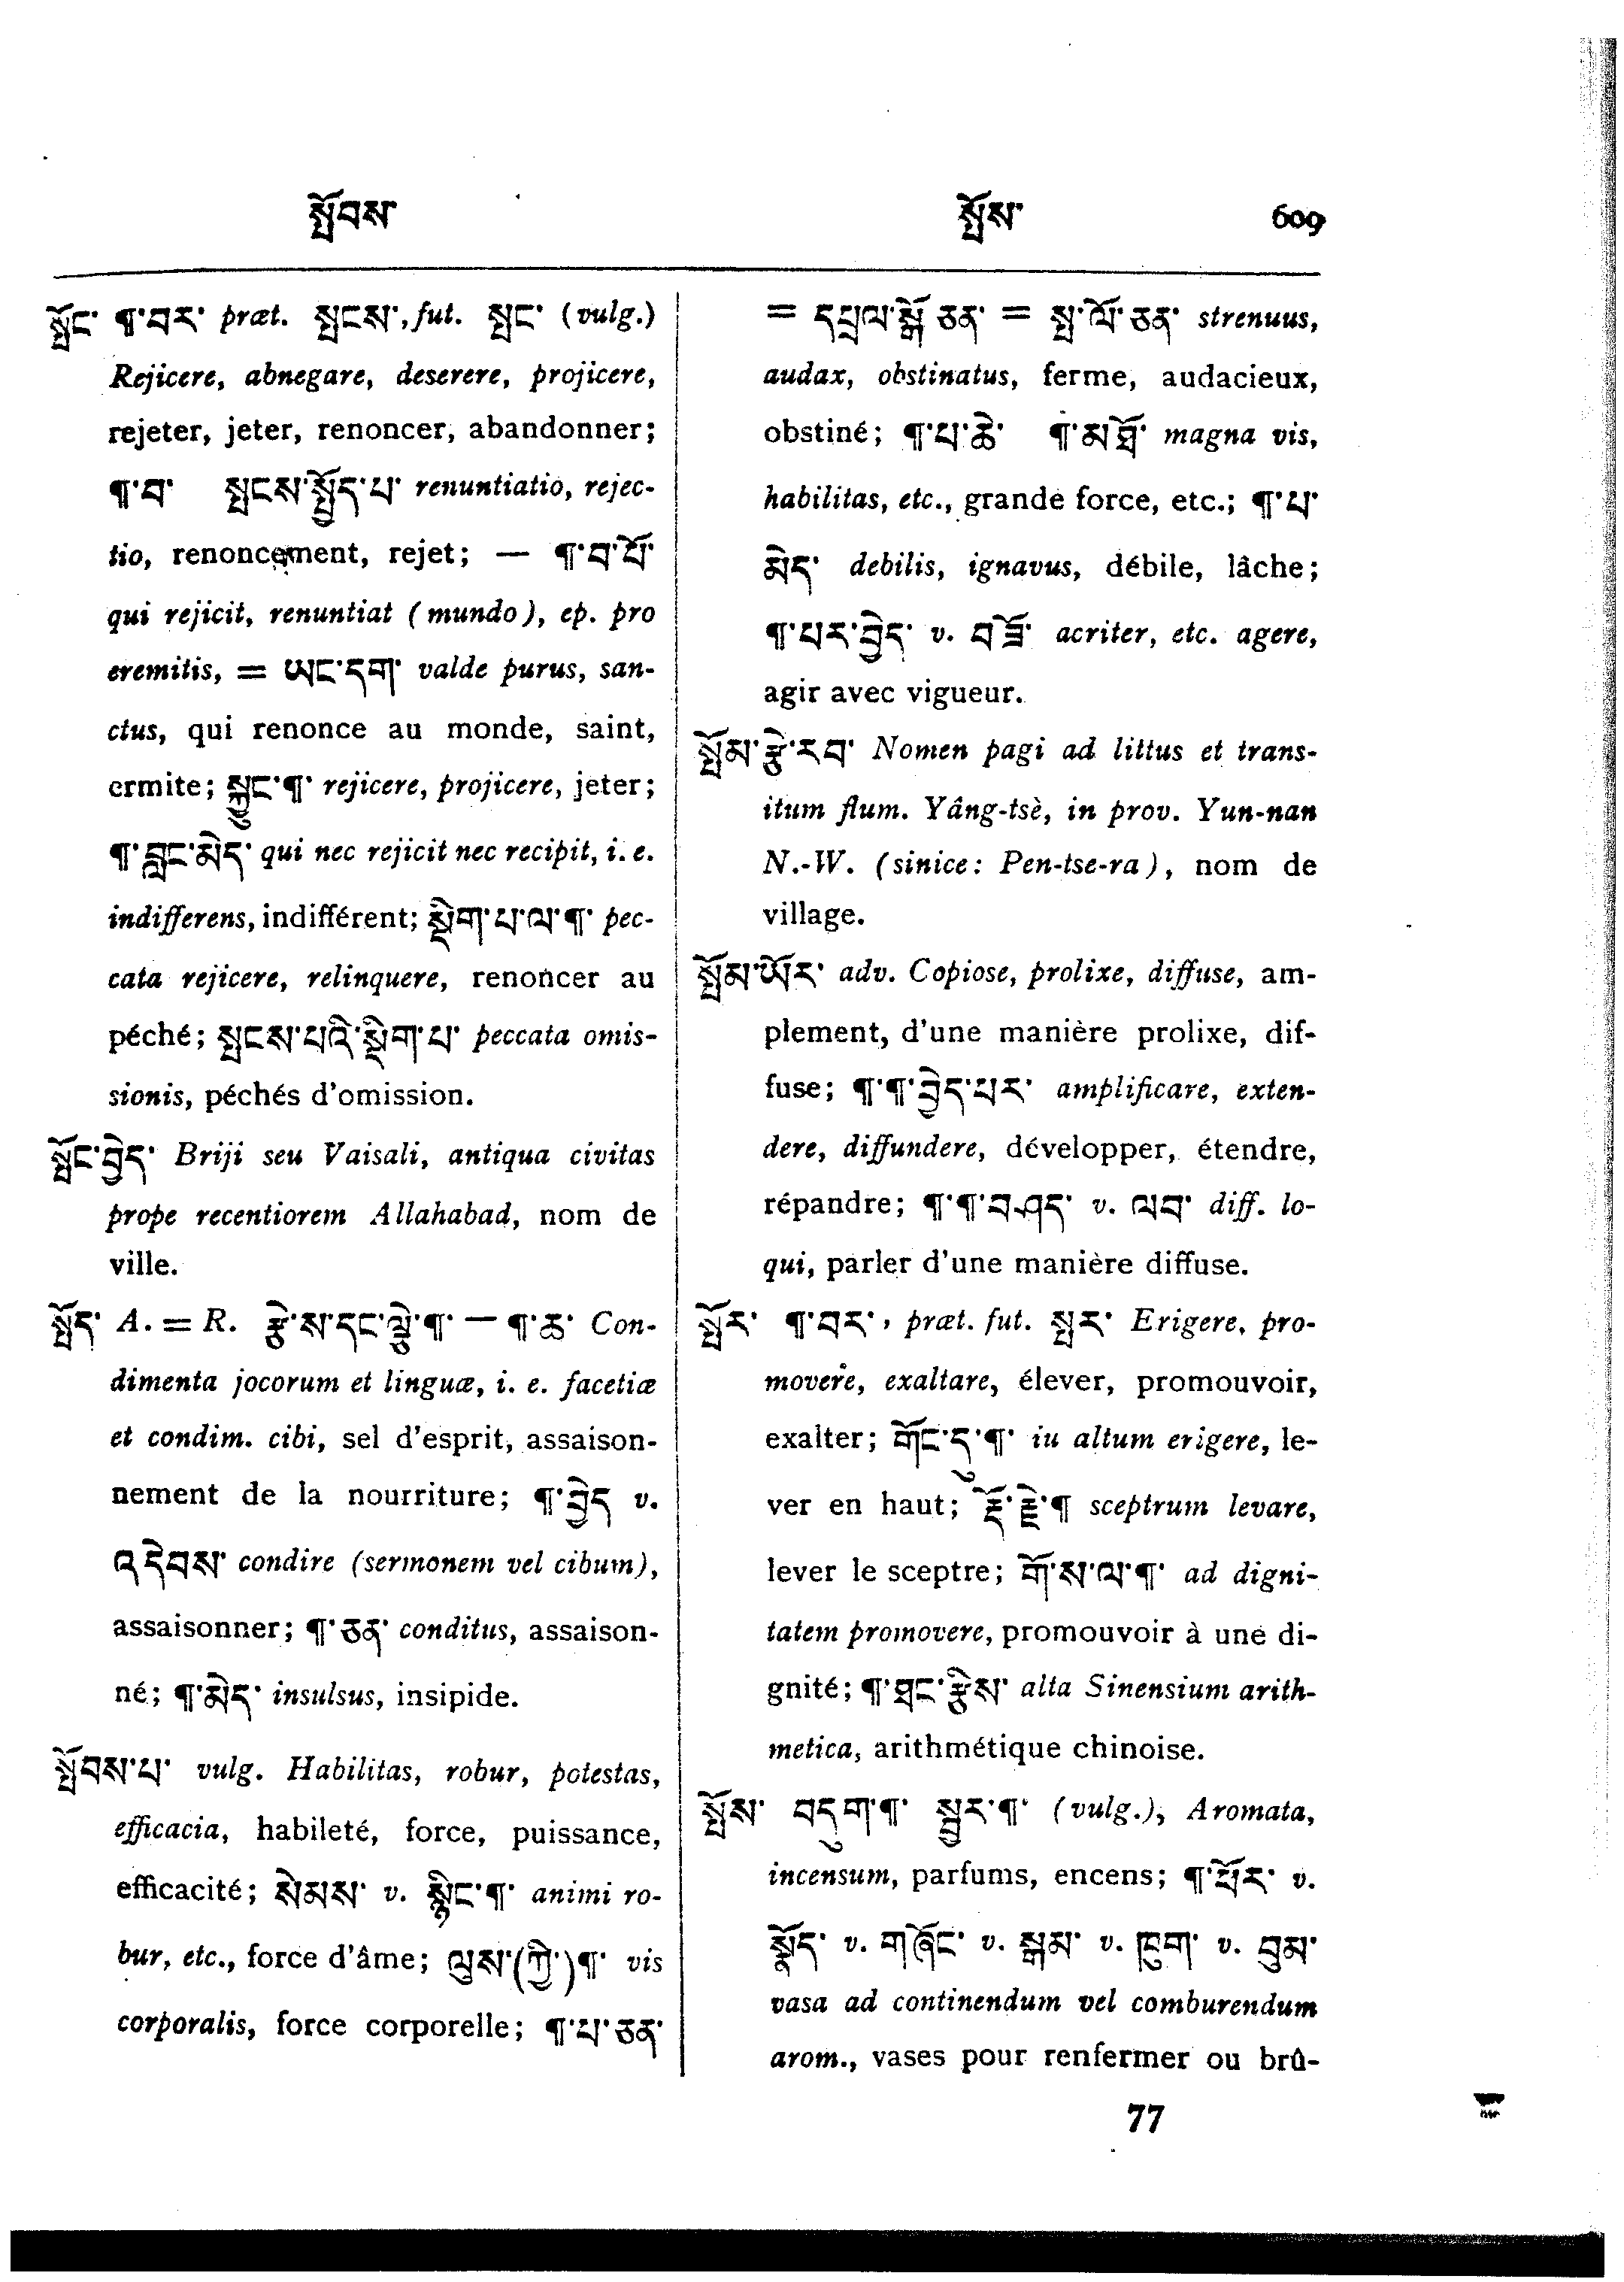 སྤོབས་
སྤོས་
609
སྤོང་ ¶་བར་ præt. སྤངས་, fut. སྤང་ (vulg.)
Rejicere, abnegare, deserere, projicere,
rejeter, jeter, renoncer, abandonner;
¶་བ་ སྤངས་སྤྱོད་པ་ renuntiatio, rejec-
tio, renoncement, rejet; — ¶་བ་པོ་
qui rejicit, renuntiat (mundo), ep. pro
eremitis, = ཡང་དག་ valde purus, san-
ctus, qui renonce au monde, saint,
ermite; སྐྱུང་¶་ rejicere, projicere, jeter;
¶་བླང་མེད་ qui nec rejicit nec recipit, i. e.
indifferens, indifférent; སྡིག་པ་ལ་¶་ pec-
cata rejicere, relinquere, renoncer au
péché; སྤངས་པའི་སྡིག་པ་ peccata omis-
sionis, péchés d'omission.
སྤོང་བྱེད་ Briji seu Vaisali, antiqua civitas
prope recentiorem Allahabad, nom de
ville.
སྤོད་ A. = R. རྩེ་ས་དང་ལྕེ་¶་ — ¶་ཆ་ Con-
dimenta jocorum et linguæ, i. e. facetiæ
et condim. cibi, sel d'esprit, assaison-
nement de la nourriture; ¶་བྱེད v.
འདེབས་ condire (sermonem vel cibum),
assaisonner; ¶་ཅན་ conditus, assaison-
né; ¶་མེད་ insulsus, insipide.
སྤོབས་པ་ vulg. Habilitas, robur, potestas,
efficacia, habileté, force, puissance,
efficacité; སེམས་ v. སྙིང་¶་ animi ro-
bur, etc., force d'âme; ལུས་(ཀྱི་)¶་ vis
corporalis, force corporelle; ¶་པ་ཅན་
= དཔྲལ་སྒོ་ཅན་ = སྤ་ལོ་ཅན་ strenuus,
audax, obstinatus, ferme, audacieux,
obstiné; ¶་པ་ཆེ་ ¶་མཐོ་ magna vis,
habilitas, etc., grande force, etc.; ¶་པ་
མེད་ debilis, ignavus, débile, lâche;
¶་པར་བྱེད་ v. བཟོ་ acriter, etc. agere,
agir avec vigueur.
སྤོམ་རྩེ་རབ་ Nomen pagi ad littus et trans-
itum flum. Yâng-tsè, in prov. Yun-nan
N.-W. (sinice: Pen-tse-ra), nom de
village.
སྤོམ་ཡོར་ adv. Copiose, prolixe, diffuse, am-
plement, d'une manière prolixe, dif-
fuse; ¶་¶་བྱེད་པར་ amplificare, exten-
dere, diffundere, développer, étendre,
répandre; ¶་¶་བཤད་ v. ལབ་ diff. lo-
qui, parler d'une manière diffuse.
སྤོར་ ¶་བར་, præt. fut. སྤར་ Erigere, pro-
movere, exaltare, élever, promouvoir,
exalter; གོང་དུ་¶་ iu altum erigere, le-
ver en haut; རྡོ་རྗེ་¶ sceptrum levare,
lever le sceptre; གོ་ས་ལ་¶་ ad digni-
tatem promovere, promouvoir à une di-
gnité; ¶་ཐང་རྩིས་ alta Sinensium arith-
metica, arithmétique chinoise.
སྤོས་ བདུག་¶་ སྦྱར་¶་ (vulg.), Aromata,
incensum, parfums, encens; ¶་ཕོར་ v.
སྣོད་ v. གཞོང་ v. སྒམ་ v. ཁུག་ v. བུམ་
vasa ad continendum vel comburendum
arom., vases pour renfermer ou brû-
77